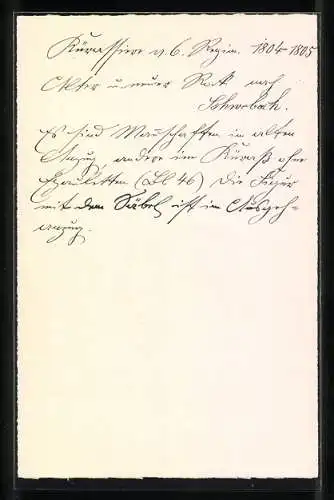 Kürassiere v. 6. Regim. 1804-1805
Alter u. neuer Rock nach
Schwebach.
Es sind Mannschaften im alten
Anzug, andere im Küraß ohne
Epauletten (Bl 46) Die Figur
mit dem Säbel ist im Ausgeh-
anzug.